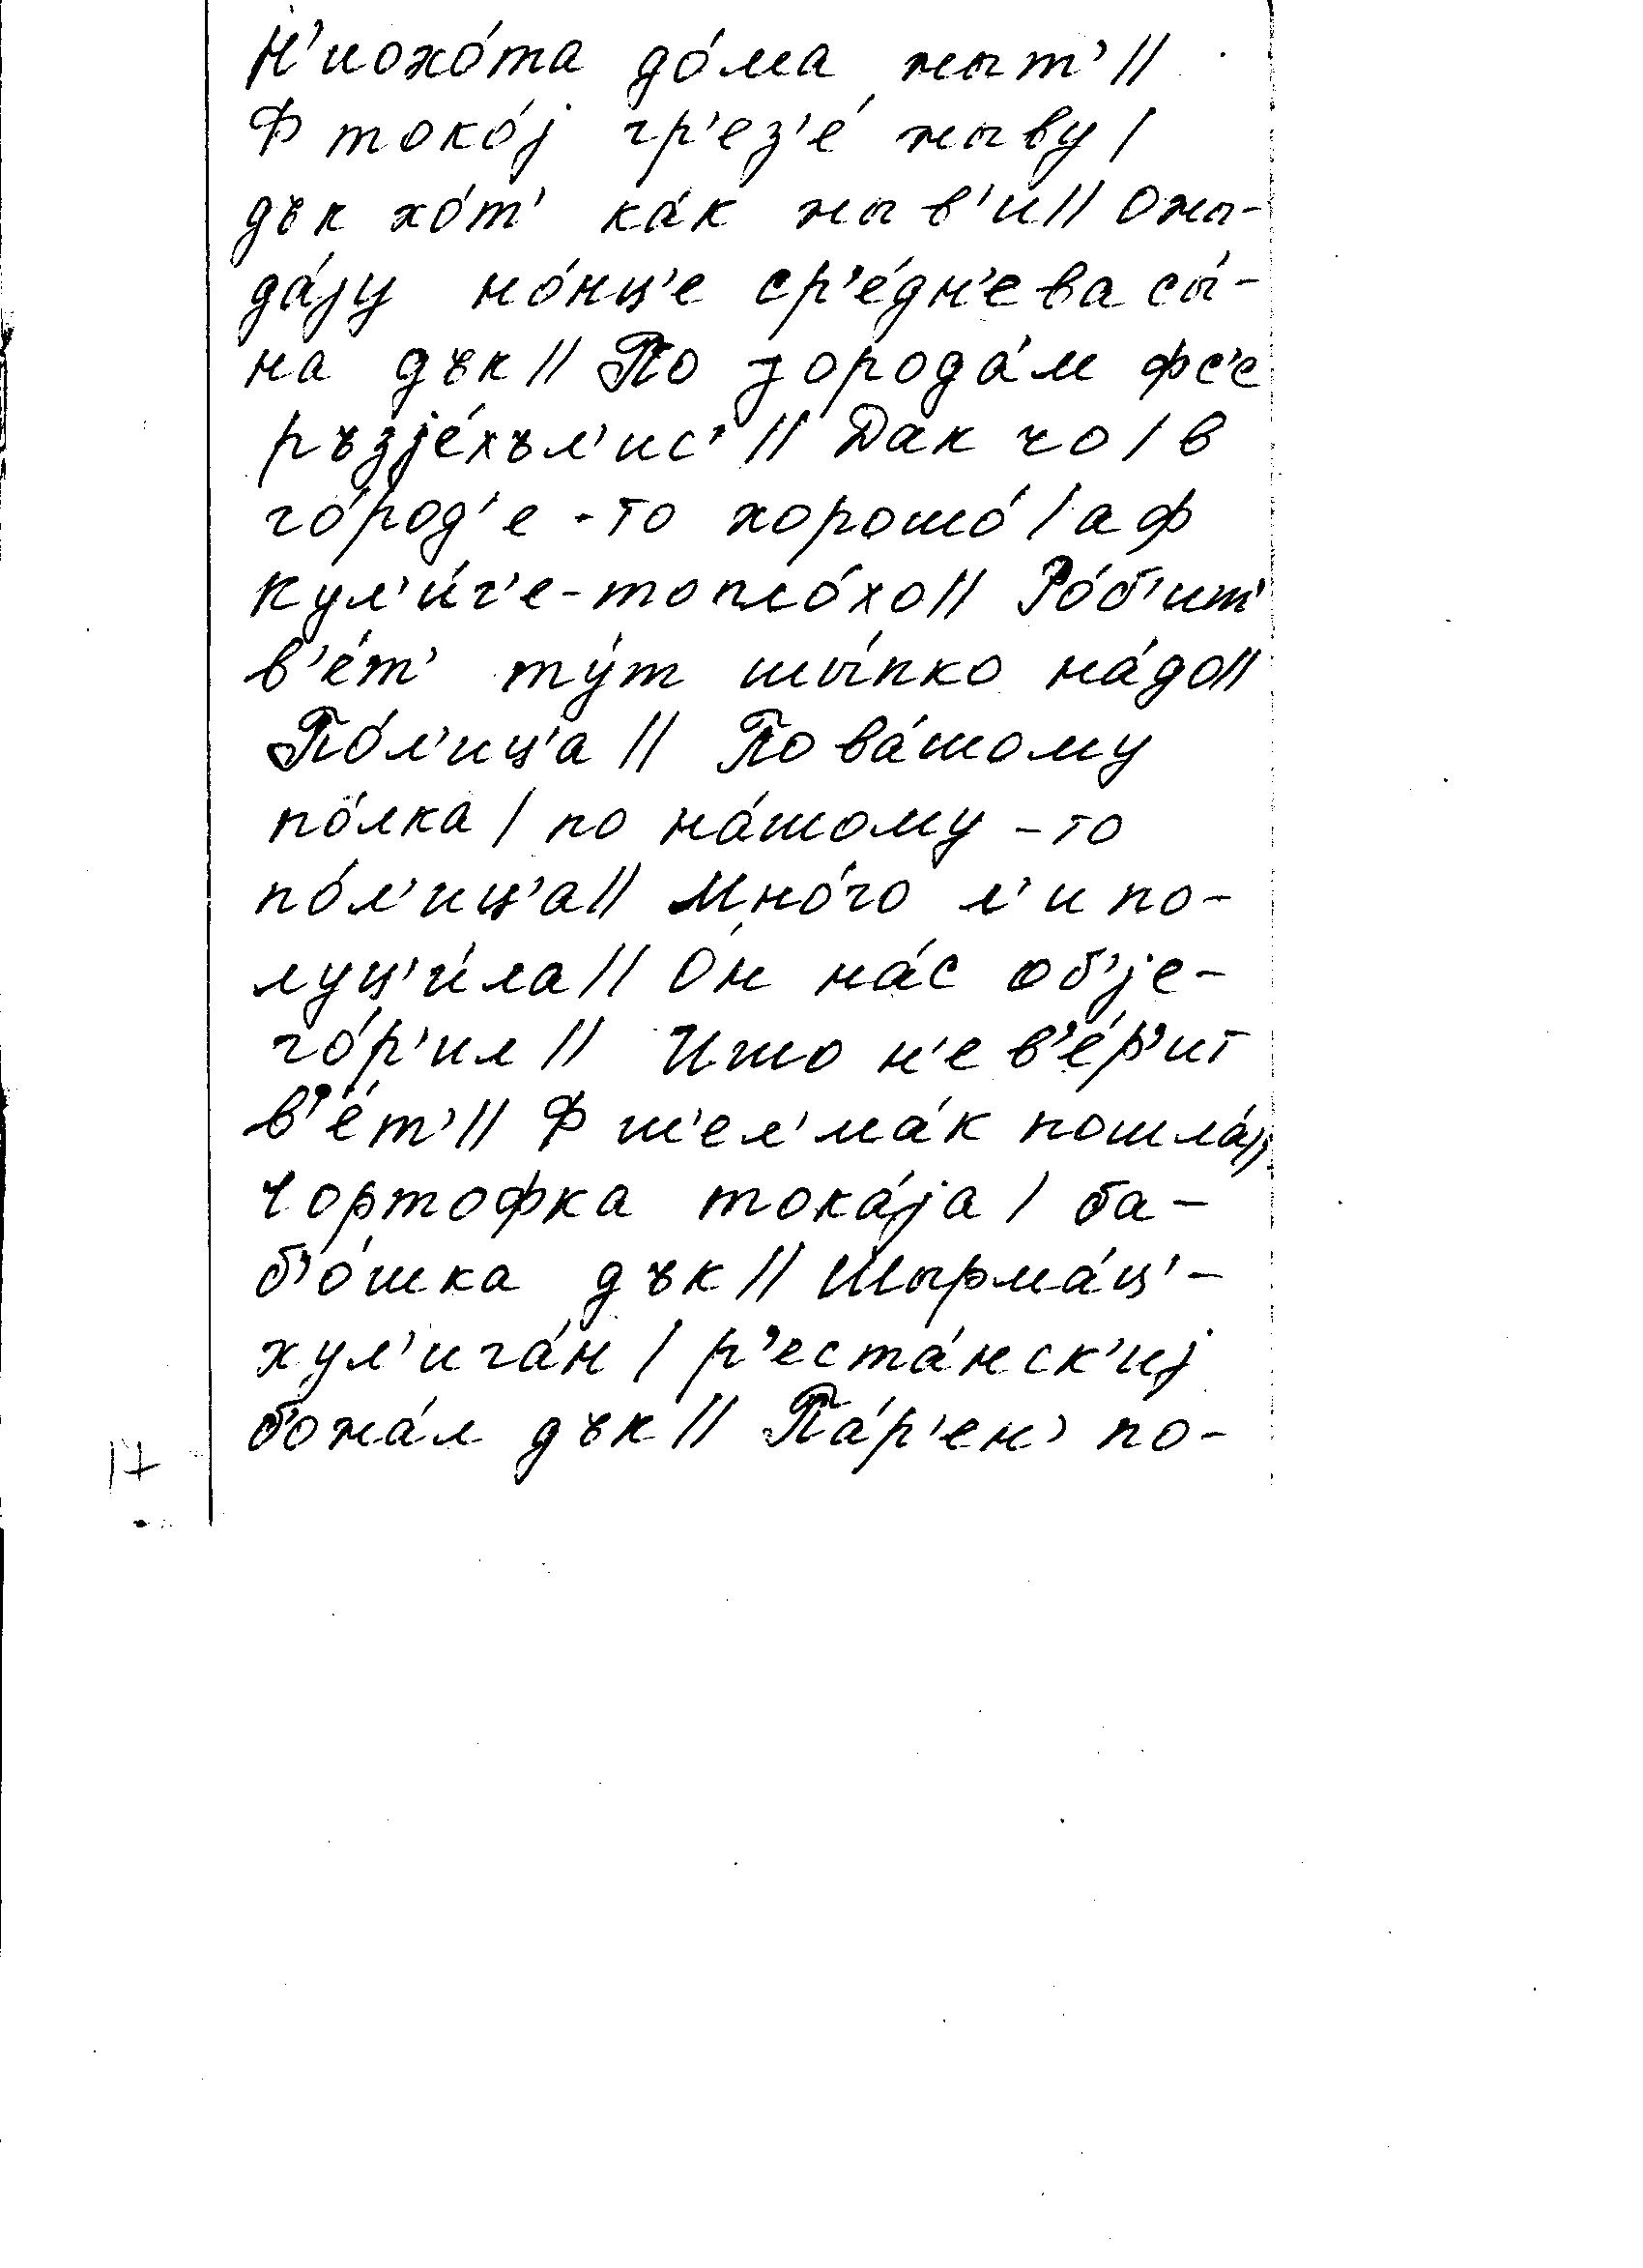 Н'иохо́та до́ма жыт' //
Ф токо́j гр'ез'е́ жыву /
дък хо́т' ка́к жыв'и // Ожы-
да́jу но́нц'е ср'е́дн'ева сы́-
на дък // По города́м фс'е
ръзjе́хъл'ис' // Дак чо / в
го́род'е-то хорошо́ / а ф
Кул'и́г'е-то пло́хо // Ро́б'ит'
в'е́т' ту́т шы́пко на́до //
По́л'иц'а // По ва́шому
по́лка / по на́шому-то
по́л'иц'а // Мно́го л'и по-
луц'и́ла // О́н на́с об'jе-
го́р'ил // Ишо н'е в'е́р'ит
в'е́т' // Ф ш'ел'ма́к пошла́ //
Чортофка тока́jа / ба-
б'о́шка дък // Шырма́ц' -
хул'ига́н / р'еста́нск'иj
божа́л дък // Па́р'ен' по-
17